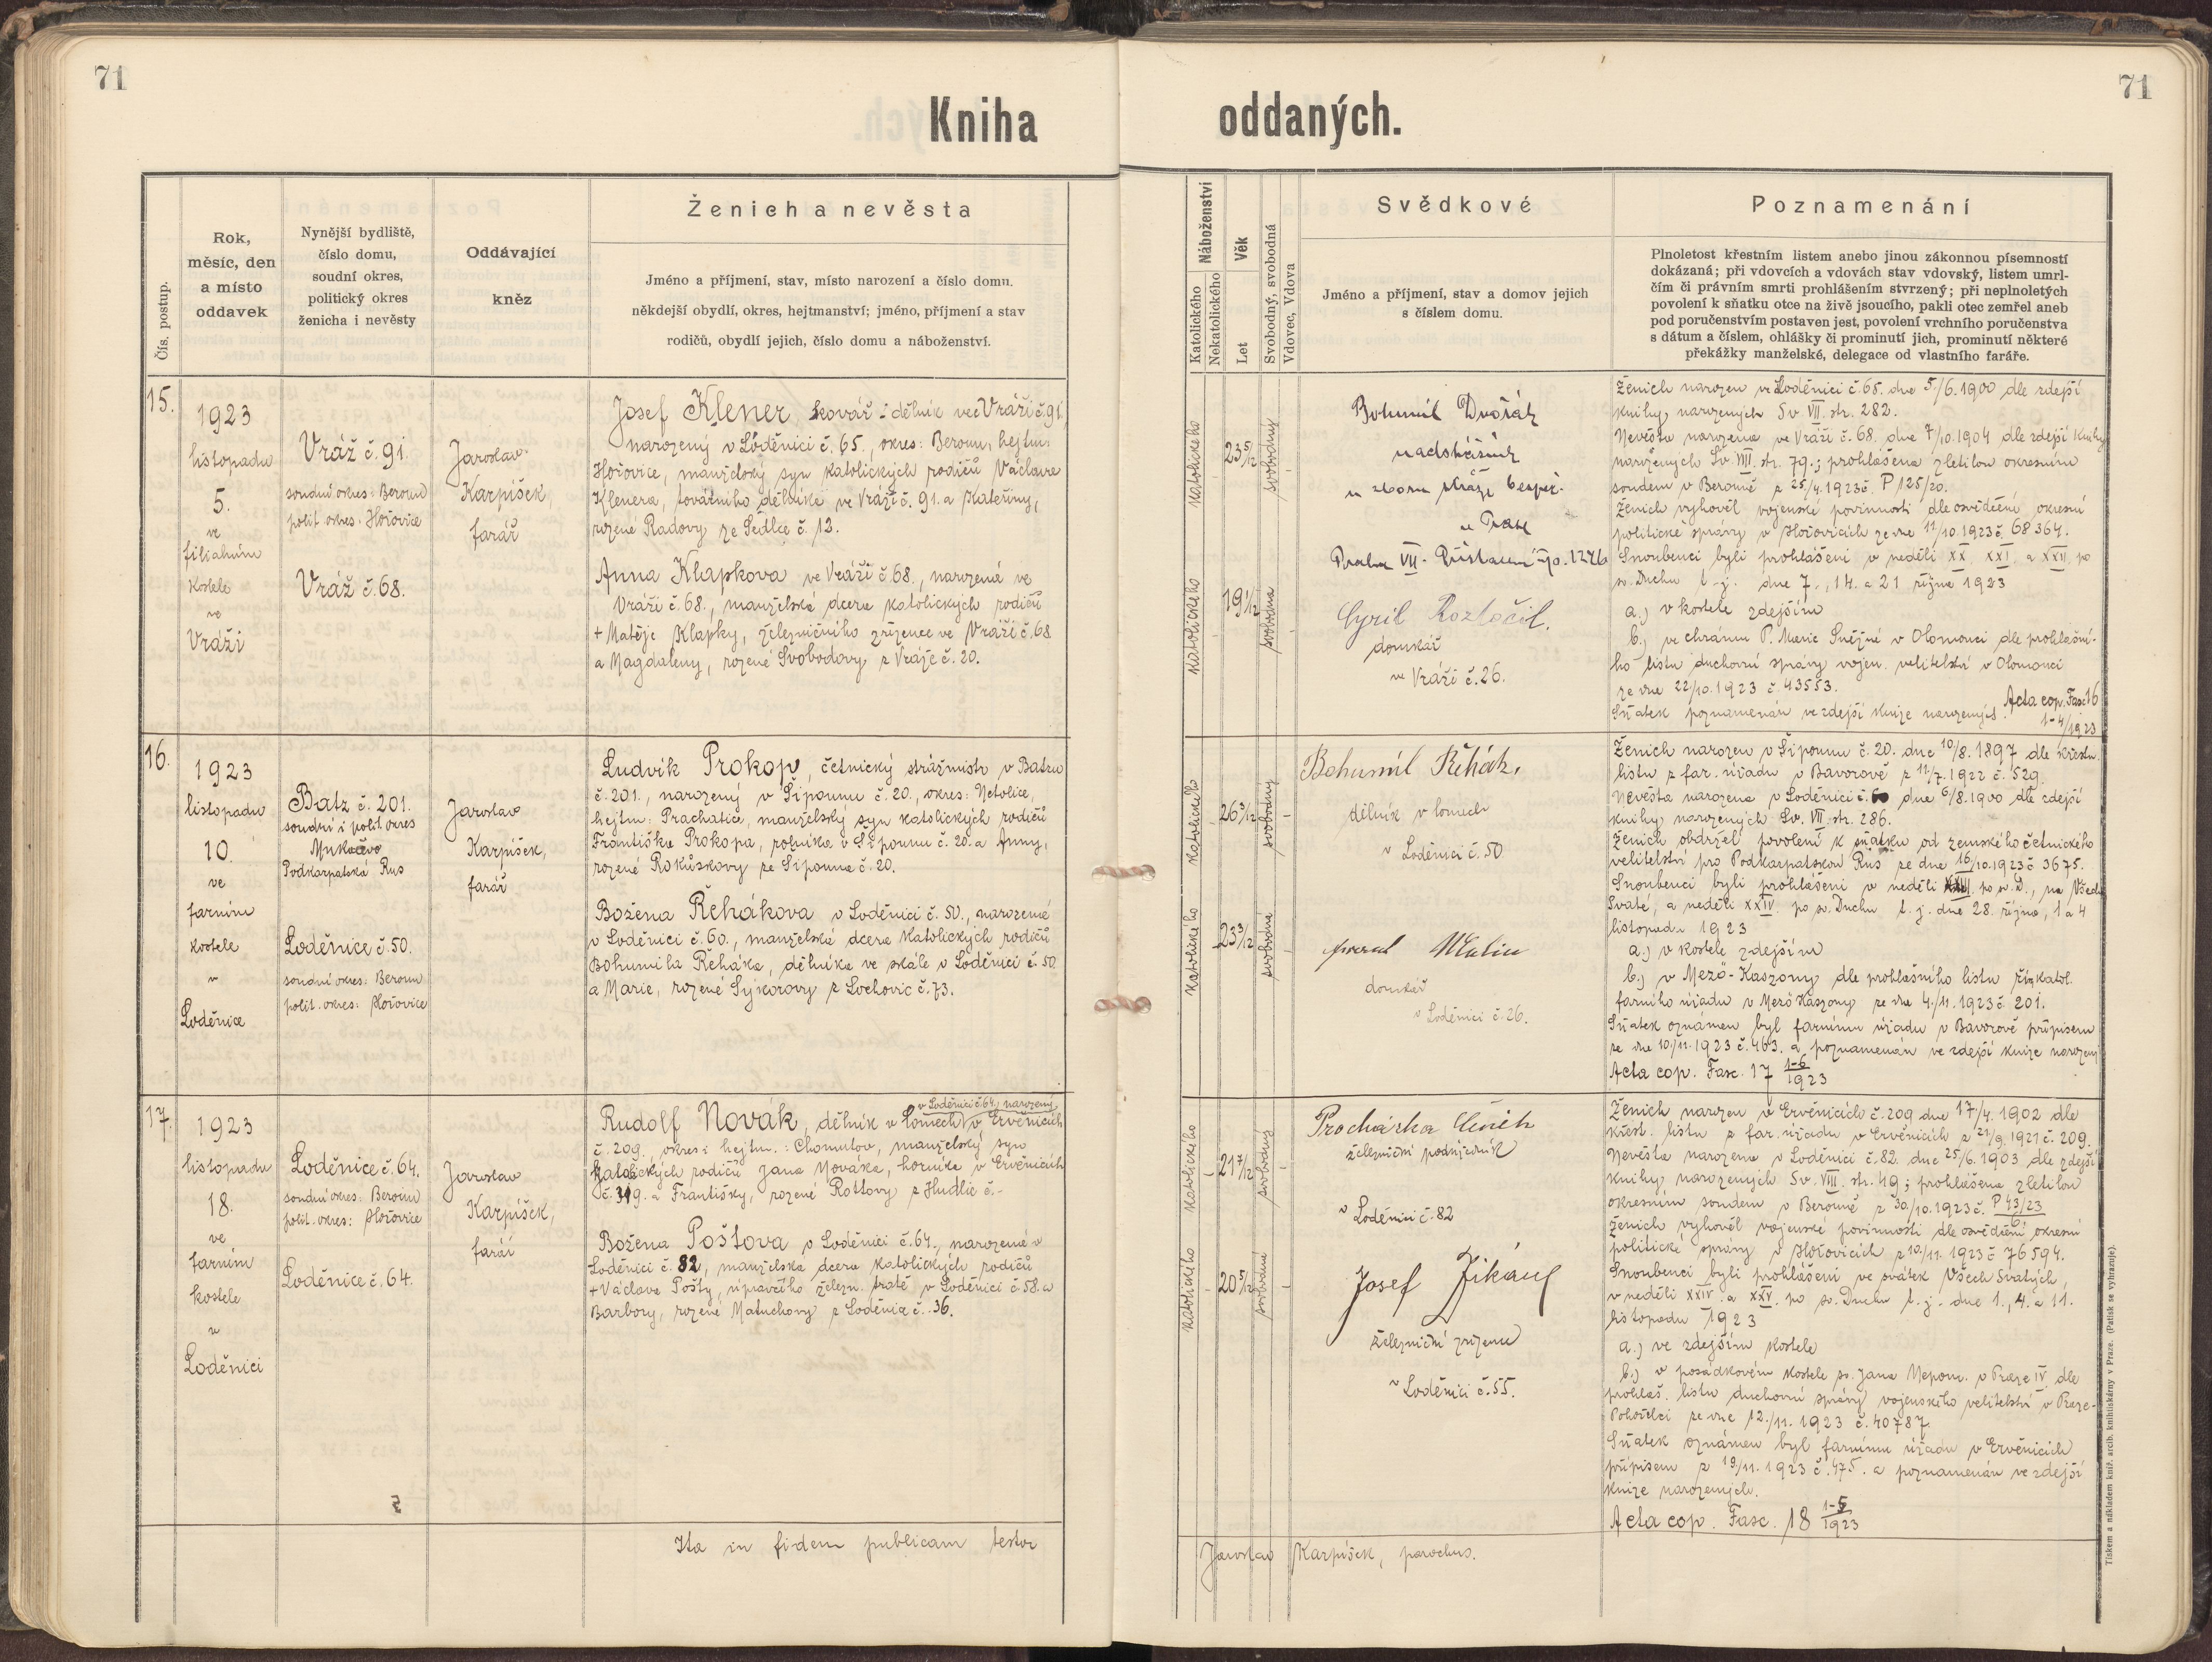 71
71
Kniha
oddaných.
Čís. postup.
Rok,
měsíc, den
a místo
oddavek
Nynější bydliště,
číslo domu,
soudní okres,
politický okres
ženicha i nevěsty
Oddávající
kněz
Ženich a nevěsta
Jméno a příjmení, stav, místo narození a číslo domu.
někdejší obydlí, okres, hejtmanství; jméno, příjmení a stav
rodičů, obydlí jejich, číslo domu a náboženství.
Náboženství
Katolického
Nekatolického
Věk
Let
Svobodný, svobodná
Vdovec, Vdova
Svědkové
Jméno a příjmení, stav a domov jejich
s číslem domu.
Poznamenání
Plnoletost křestním listem anebo jinou zákonnou písemností
dokázaná; při vdovcích a vdovách stav vdovský, listem umrl-
čím či právním smrti prohlášením stvrzený; při neplnoletých
povolení k sňatku otce na živě jsoucího, pakli otec zemřel aneb
pod poručenstvím postaven jest, povolení vrchního poručenstva
s dátum a číslem, ohlášky či prominutí jich, prominutí některé
překážky manželské, delegace od vlastního faráře.
15.
1923
listopadu
5.
ve
filiálním
kostele
ve
Vráži
Vráž č. 91.
soudní okres: Beroun
polit. okres: Hořovice
Vráž č. 68.
Jaroslav
Karpíšek,
farář
Josef Klener, kovář - dělník ve Vráži č. 91,
narozený v Loděnici č. 65, okres: Beroun, hejtm:
Hořovice, manželský syn katolických rodičů Václava
Klenera, továrního dělníka ve Vráži č. 91. a Kateřiny,
rozené Radovy ze Sedlce č. 12.
Anna Klapkova ve Vráži č. 68., narozená ve
Vráži č. 68., manželská dcera katolických rodičů
+ Matěje Klapky, železničního zřízence ve Vráži č. 68
a Magdaleny, rozené Svobodovy z Vráže č. 20.
katolického
23 5/12
svobodný
katolického
19 1/12
svobodná
Bohumil Dvořák
nadstrážník
u sboru stráže bezpeč.
v Praze
Praha VII - Přístavní čp. 1276
Cyril Roztočil.
domkář
ve Vráži č. 26.
Ženich narozen ve Loděnici č. 65. dne 5./6. 1900 dle zdejší
knihy narozených Sv. VII. str. 282.
Nevěsta narozena ve Vráži č. 68. dne 7/10. 1904 dle zdejší knihy
narozených Sv. VIII. str. 79.; prohlášena zletilou okresním
soudem v Berouně z 25/4. 1923 č. P 125/20.
Ženich vyhověl vojenské povinnosti dle osvědčení okresní
politické správy v Hořovicích ze dne 11/10. 1923 č. 68364.
Snoubenci byli prohlášeni v neděli XX. XXI. a XXII. po
sv. Duchu t. j. dne 7., 14. a 21. října 1923
a.) v kostele zdejším
b.) ve chrámu P. Marie Sněžné v Olomouci dle prohlašní-
ho listu duchovní správy vojen. velitelství v Olomouci
ze dne 22/10. 1923 č. 43553.
Sňatek poznamenán ve zdejší knize narozených. Acta cop. Fasc 16
1-4/1923
16.
1923
listopadu
10.
ve
farním
kostele
v
Loděnice
Batz č. 201.
soudní i polit. okres
Mukačevo
Podkarpatská Rus
Loděnice č. 50.
soudní okres: Beroun
polit. okres: Hořovice
Jaroslav
Karpíšek,
farář
Ludvík Prokop, četnický strážmistr v Batzu
č. 201., narozený v Šipounu č. 20., okres: Netolice,
hejtm: Prachatice, manželský syn katolických rodičů
Františka Prokopa, rolníka v Šipounu č. 20. a Anny,
rozené Rokůskovy ze Šipouna č. 20.
Božena Řehákova v Loděnici č. 50., narozená
v Loděnici č. 60., manželská dcera katolických rodičů
Bohumila Řeháka, dělníka ve skále v Loděnici č. 50
a Marie, rozené Sýkorovy z Lochovic č. 73.
katolického
26 3/12
svobodný
katolického
23 3/12
svobodná
Bohumil Řehák,
dělník v lomech
v Loděnici č. 50
Malina
domkář
v Loděnici č. 26.
Ženich narozen v Šipounu č. 20. dne 10/8. 1897 dle křestn.
listu z far. úřadu v Bavorově z 12/7. 1922 č. 529.
Nevěsta narozena v Loděnici č. 60 dne 6/8. 1900 dle zdejší
knihy narozených Sv. VII. str. 286.
Ženich obdržel povolení k sňatku od zemského četnického
velitelství pro Podkarpatskou Rus ze dne 16/10. 1923 č 3675.
Snoubenci byli prohlášeni v neděli XXIII. po sv. D., na Všech
Svaté, a neděli XXIV. po sv. Duchu t. j. dne 28. října, 1 a 4
listopadu 1923
a.) v kostele zdejším
b.) v Mező-Kaszony dle prohlašního listu řím. katol.
farního úřadu v Mező Kaszony ze dne 4./11. 1923 č. 201.
Sňatek oznámen byl farnímu úřadu v Bavorově přípisem
ze dne 10./11. 1923 č. 463. a poznamenán ve zdejší knize narozený
Acta cop. Fasc. 17 1-6/1923
17.
1923
listopadu
18.
ve
farním
kostele
v
Loděnici
Loděnice č. 64.
soudní okres: Beroun
polit. okres: Hořovice
Loděnice č. 64.
Jaroslav
Karpíšek,
farář
v Loděnici č. 64, narozený
Rudolf Novák, dělník v lomech v Ervěnicích
č. 209., okres i hejtm.: Chomutov, manželský syn
katolických rodičů Jana Nováka, horníka v Ervěnicích
č. 319. a Františky, rozené Rottovy z Hudlic č.-
Božena Poštova v Loděnici č. 64., narozená v
Loděnici č. 82, manželská dcera katolických rodičů
+ Václava Pošty, úpravčího železn. tratě v Loděnici č. 58. a
Barbory, rozené Matuchovy z Loděnic č. 36.
katolického
21 7/12
svobodný
katolického
20 5/12
svobodná
Procházka
železniční podúředník
v Loděnici č. 82
Josef
železniční zřízenec
v Loděnici č. 55.
Ženich narozen v Ervěnicích č. 209 dne 17/4. 1902 dle
křest. listu z far. úřadu v Ervěnicích z 21/9. 1921 č. 209.
Nevěsta narozena v Loděnici č. 82. dne 25/6. 1903 dle zdejší
knihy narozených Sv. VIII. str. 49; prohlášena zletilou
okresním soudem v Berouně z 30/10. 1923 č. P 43/23
6
Ženich vyhověl vojenské povinnosti dle osvědčení okresní
politické správy v Hořovicích z 10./11. 1923 č 76594.
Snoubenci byli prohlášeni ve svátek Všech Svatých,
v neděli XXIV. a XXV. po sv. Duchu t. j. dne 1., 4. a 11.
listopadu 1923
a.) ve zdejším kostele
b.) v posádkovém kostele sv. Jana Nepom. v Praze IV dle
prohlaš. listu duchovní správy vojenského velitelství v Praze-
Pohořelci ze dne 12./11. 1923 č. 40787.
Sňatek oznámen byl farnímu úřadu v Ervěnicích
přípisem z 19/11. 1923 č. 475. a poznamenán ve zdejší
knize narozených.
Acta cop. Fasc. 18 1-5/1923
Ita in fidem publicam testor
Jaroslav Karpíšek, parochus.
Tiskem a nákladem kníž. arcib. knihtiskárny v Praze. (Patisk se vyhrazuje).